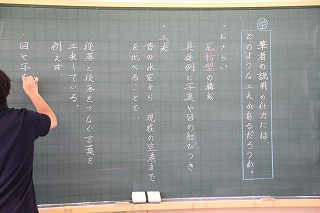 筆者の説明の仕方には、
どのような工夫があるだろうか。
・おさらい
尾括型の構成
具体例と写真や図の結びつき
・工夫
昔の水空から、現在の空港まで
を比べることで、
段落と段落をつなぐ言葉を
工夫している。
例えば、
図や写